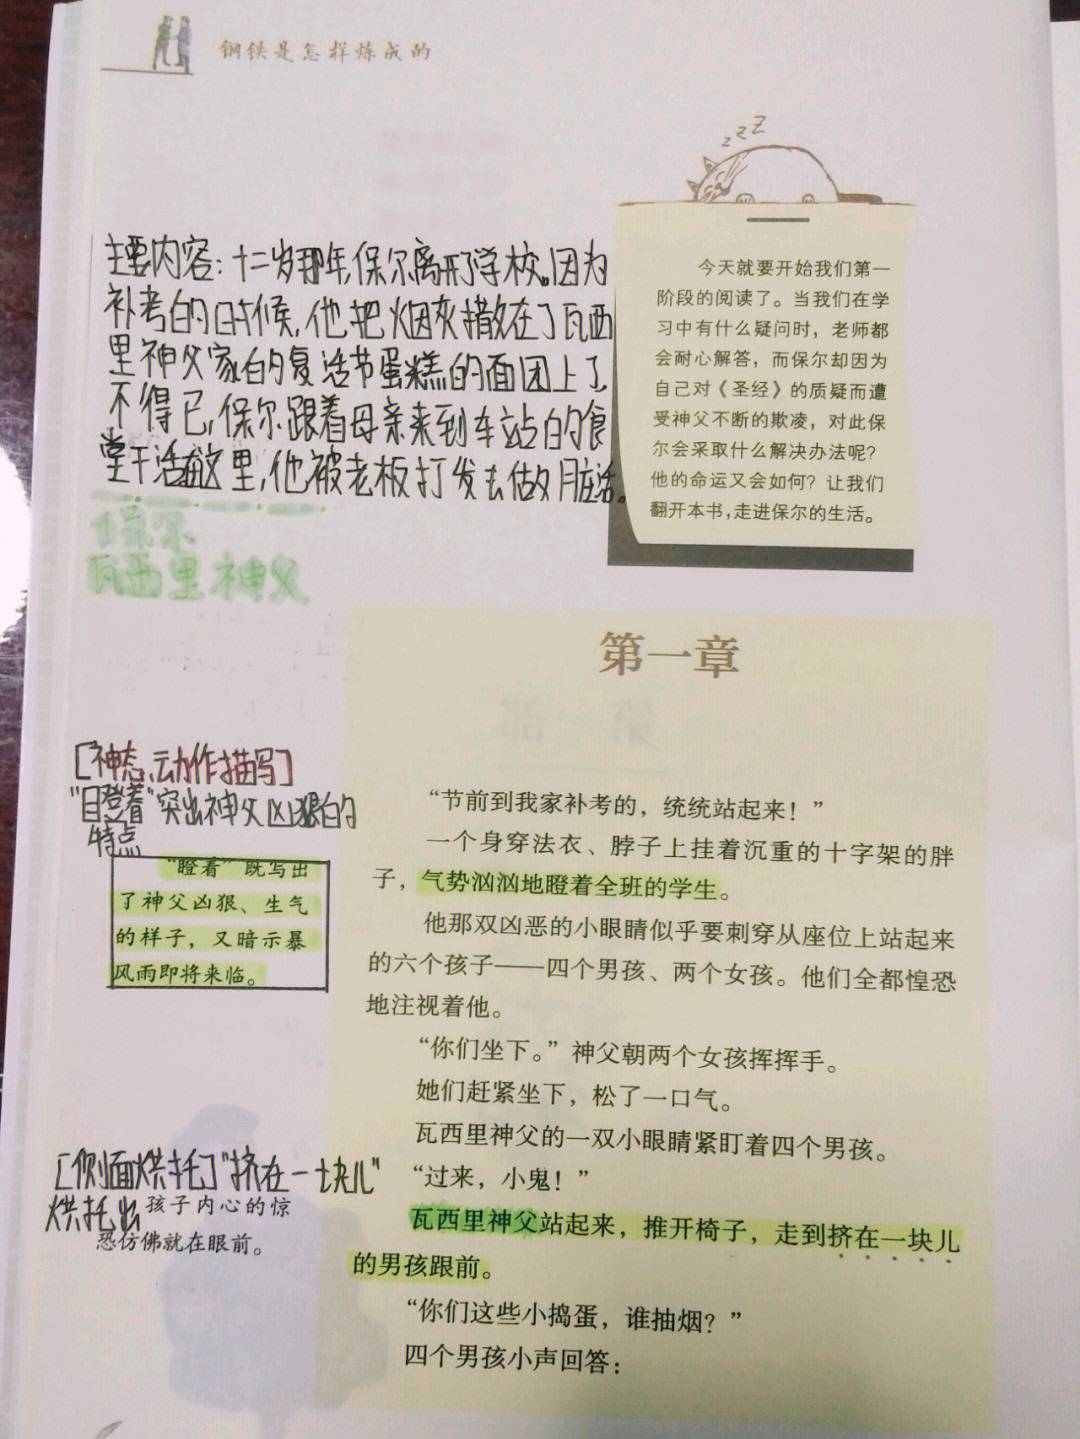 钢铁是怎样炼成的
zZZ
主要内容：十二岁那年，保尔离开了学校。因为
补考的时候，他把烟灰撒在了瓦西
里神父家的复活节蛋糕的面团上了
不得已，保尔跟着母亲来到车站的食
堂干活。在这里，他被老板打发去做脏活。
保尔
瓦西里神父
今天就要开始我们第一
阶段的阅读了。当我们在学
习中有什么疑问时，老师都
会耐心解答，而保尔却因为
自己对《圣经》的质疑而遭
受神父不断的欺凌，对此保
尔会采取什么解决办法呢？
他的命运又会如何？让我们
翻开本书，走进保尔的生活。
第一章
[神态、动作描写]
“瞪着”突出神父凶狠的
特点
“瞪着”既写出
了神父凶狠、生气
的样子，又暗示暴
风雨即将来临。
“节前到我家补考的，统统站起来！”
一个身穿法衣、脖子上挂着沉重的十字架的胖
子，气势汹汹地瞪着全班的学生。
他那双凶恶的小眼睛似乎要刺穿从座位上站起来
的六个孩子——四个男孩、两个女孩。他们全都惶恐
地注视着他。
“你们坐下。”神父朝两个女孩挥挥手。
她们赶紧坐下，松了一口气。
瓦西里神父的一双小眼睛紧盯着四个男孩。
“过来，小鬼！”
瓦西里神父站起来，推开椅子，走到挤在一块儿
的男孩跟前。
“你们这些小捣蛋，谁抽烟？”
四个男孩小声回答：
[侧面烘托]“挤在一块儿”
烘托出孩子内心的惊
恐仿佛就在眼前。